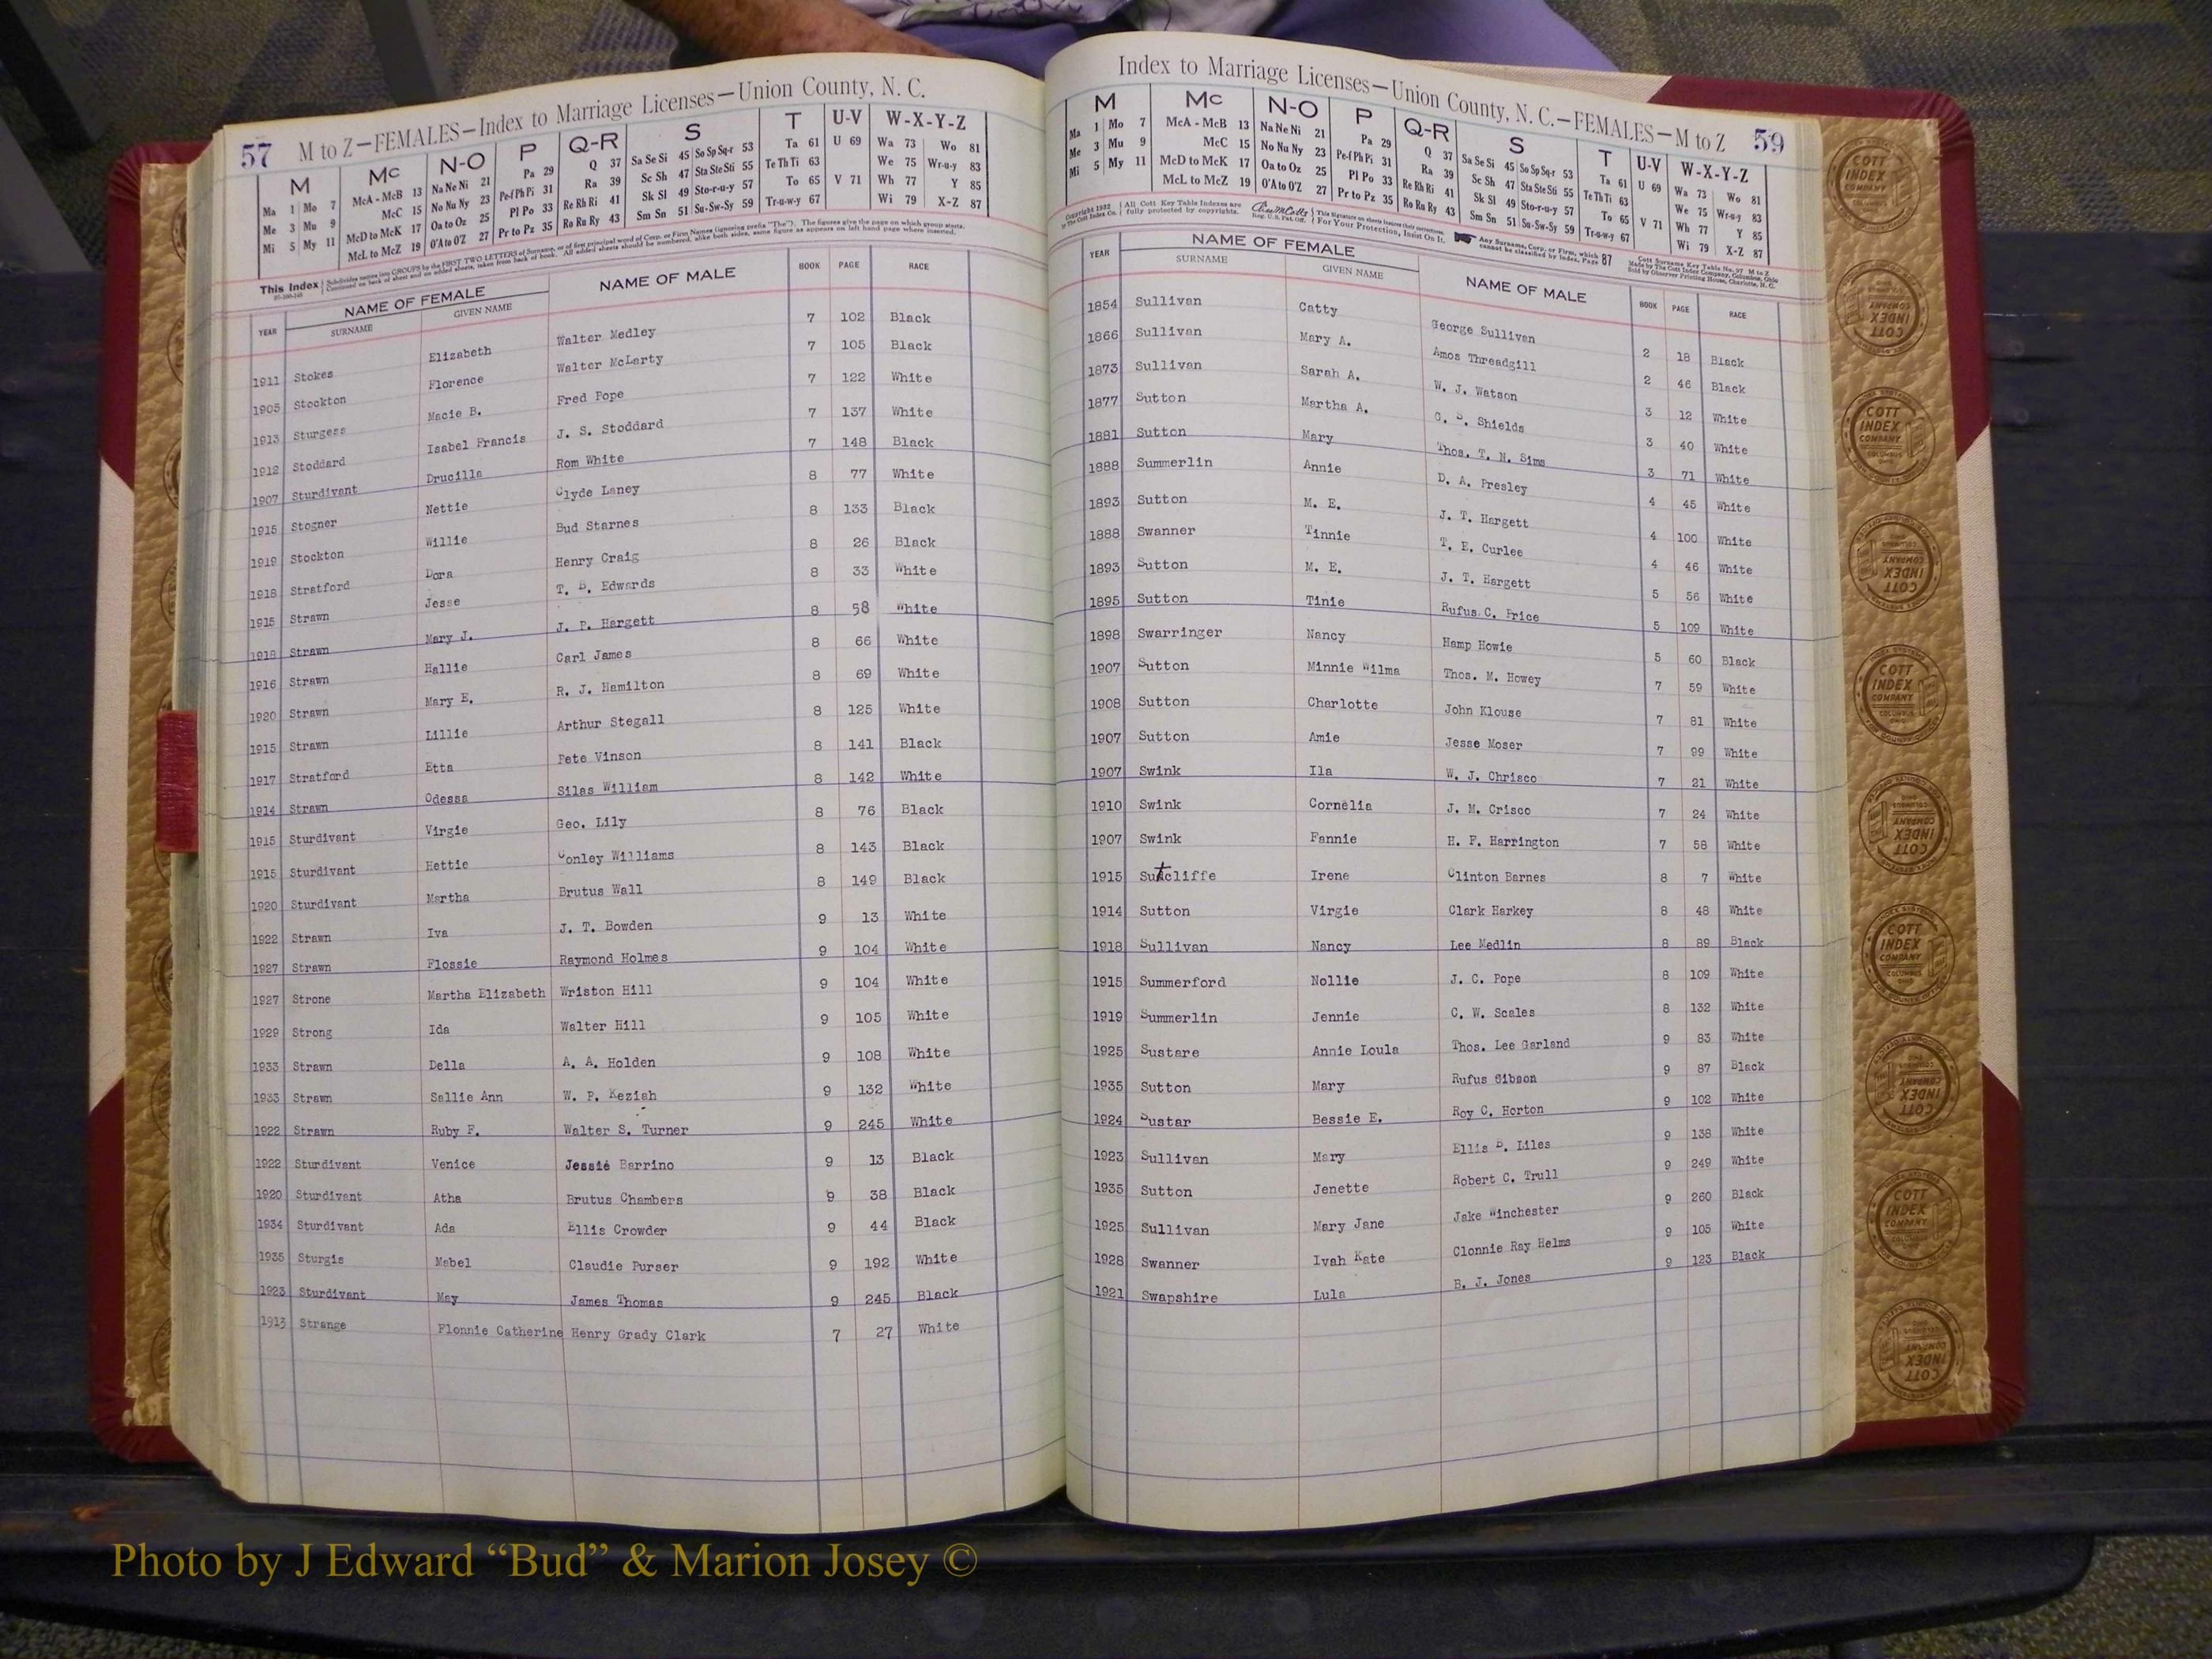 57 M to Z—FEMALES—Index to Marriage Licenses—Union County, N. C.
M Mc N-O P Q-R S T U-V W-X-Y-Z
Ma 1 Mo 7 McA - McB 13 Na Ne Ni 21 Pa 29 Q 37 Sa Se Si 45 So Sp Sq-r 53 Ta 61 U 69 Wa 73 Wo 81
Me 3 Mu 9 McC 15 No Nu Ny 23 Pe-f Ph Pi 31 Ra 39 Sc Sh 47 Sta Ste Sti 55 Te Th Ti 63 We 75 Wr-u-y 83
Mi 5 My 11 McD to McK 17 Oa to Oz 25 Pl Po 33 Re Rh Ri 41 Sk Sl 49 Sto-r-u-y 57 To 65 V 71 Wh 77 Y 85
McL to McZ 19 O'A to O'Z 27 Pr to Pz 35 Ro Ru Ry 43 Sm Sn 51 Su-Sw-Sy 59 Tr-u-w-y 67 Wi 79 X-Z 87
This Index Subdivides names into GROUPS by the FIRST TWO LETTERS of Surname, or of first principal word of Corp. or Firm Names (ignoring prefix "The"). The figures give the page on which group starts.
Continued on back of sheet and on added sheets, taken from back of book. All added sheets should be numbered, alike both sides, same figure as appears on left hand page where inserted.
YEAR NAME OF FEMALE NAME OF MALE BOOK PAGE RACE
SURNAME GIVEN NAME
1911 Stokes Elizabeth Walter Medley 7 102 Black
1905 Stockton Florence Walter McLarty 7 105 Black
1913 Sturgess Macie B. Fred Pope 7 122 White
1912 Stoddard Isabel Francis J. S. Stoddard 7 137 White
1907 Sturdivant Drucilla Rom White 7 148 Black
1915 Stogner Nettie Clyde Laney 8 77 White
1919 Stockton Willie Bud Starnes 8 133 Black
1918 Stratford Dora Henry Craig 8 26 Black
1915 Strawn Jesse T. B. Edwards 8 33 White
1918 Strawn Mary J. J. P. Hargett 8 58 White
1916 Strawn Hallie Carl James 8 66 White
1920 Strawn Mary E. R. J. Hamilton 8 69 White
1915 Strawn Lillie Arthur Stegall 8 125 White
1917 Stratford Etta Pete Vinson 8 141 Black
1914 Strawn Odessa Silas William 8 142 White
1915 Sturdivant Virgie Geo. Lily 8 76 Black
1915 Sturdivant Hettie Conley Williams 8 143 Black
1920 Sturdivant Martha Brutus Wall 8 149 Black
1922 Strawn Iva J. T. Bowden 9 13 White
1927 Strawn Flossie Raymond Holmes 9 104 White
1927 Strone Martha Elizabeth Wriston Hill 9 104 White
1929 Strong Ida Walter Hill 9 105 White
1933 Strawn Della A. A. Holden 9 108 White
1933 Strawn Sallie Ann W. P. Keziah 9 132 White
1922 Strawn Ruby F. Walter S. Turner 9 245 White
1922 Sturdivant Venice Jessie Barrino 9 13 Black
1920 Sturdivant Atha Brutus Chambers 9 38 Black
1934 Sturdivant Ada Ellis Crowder 9 44 Black
1935 Sturgis Mabel Claudie Purser 9 192 White
1923 Sturdivant May James Thomas 9 245 Black
1913 Strange Flonnie Catherine Henry Grady Clark 7 27 White
Index to Marriage Licenses—Union County, N. C.—FEMALES—M to Z 59
M Mc N-O P Q-R S T U-V W-X-Y-Z
Ma 1 Mo 7 McA - McB 13 Na Ne Ni 21 Pa 29 Q 37 Sa Se Si 45 So Sp Sq-r 53 Ta 61 U 69 Wa 73 Wo 81
Me 3 Mu 9 McC 15 No Nu Ny 23 Pe-f Ph Pi 31 Ra 39 Sc Sh 47 Sta Ste Sti 55 Te Th Ti 63 We 75 Wr-u-y 83
Mi 5 My 11 McD to McK 17 Oa to Oz 25 Pl Po 33 Re Rh Ri 41 Sk Sl 49 Sto-r-u-y 57 To 65 V 71 Wh 77 Y 85
McL to McZ 19 O'A to O'Z 27 Pr to Pz 35 Ro Ru Ry 43 Sm Sn 51 Su-Sw-Sy 59 Tr-u-w-y 67 Wi 79 X-Z 87
All Cott Key Table Indexes are fully protected by copyrights. For Your Protection, Insist On It. Any Surname, Corp. or Firm, which cannot be classified by Index, Page 87
YEAR NAME OF FEMALE NAME OF MALE BOOK PAGE RACE
SURNAME GIVEN NAME
1854 Sullivan Catty George Sullivan 2 18 Black
1866 Sullivan Mary A. Amos Threadgill 2 46 Black
1873 Sullivan Sarah A. W. J. Watson 3 12 White
1877 Sutton Martha A. Shields 3 40 White
1881 Sutton Mary Thos. T. N. Sims 3 71 White
1888 Summerlin Annie D. A. Presley 4 45 White
1893 Sutton M. E. J. T. Hargett 4 100 White
1888 Swanner Tinnie T. E. Curlee 4 46 White
1893 Sutton M. E. J. T. Hargett 5 56 White
1895 Sutton Tinie Rufus C. Price 5 109 White
1898 Swarringer Nancy Hamp Howie 5 60 Black
1907 Sutton Minnie Wilma Thos. M. Howey 7 59 White
1908 Sutton Charlotte John Klouse 7 81 White
1907 Sutton Amie Jesse Moser 7 99 White
1907 Swink Ila W. J. Chrisco 7 21 White
1910 Swink Cornelia J. M. Crisco 7 24 White
1907 Swink Fannie H. F. Harrington 7 58 White
1915 Sutcliffe Irene Clinton Barnes 8 7 White
1914 Sutton Virgie Clark Harkey 8 48 White
1918 Sullivan Nancy Lee Medlin 8 89 Black
1915 Summerford Nollie J. C. Pope 8 109 White
1919 Summerlin Jennie C. W. Scales 8 132 White
1925 Sustare Annie Loula Thos. Lee Garland 9 83 White
1935 Sutton Mary Rufus Gibson 9 87 Black
1924 Sustar Bessie E. Roy C. Horton 9 102 White
1923 Sullivan Mary Ellis B. Liles 9 138 White
1935 Sutton Jenette Robert C. Trull 9 249 White
1925 Sullivan Mary Jane Jake Winchester 9 260 Black
1928 Swanner Ivah Kate Clonnie Ray Helms 9 105 White
1921 Swapshire Lula B. J. Jones 9 123 Black
COTT INDEX COMPANY
Photo by J Edward “Bud” & Marion Josey ©